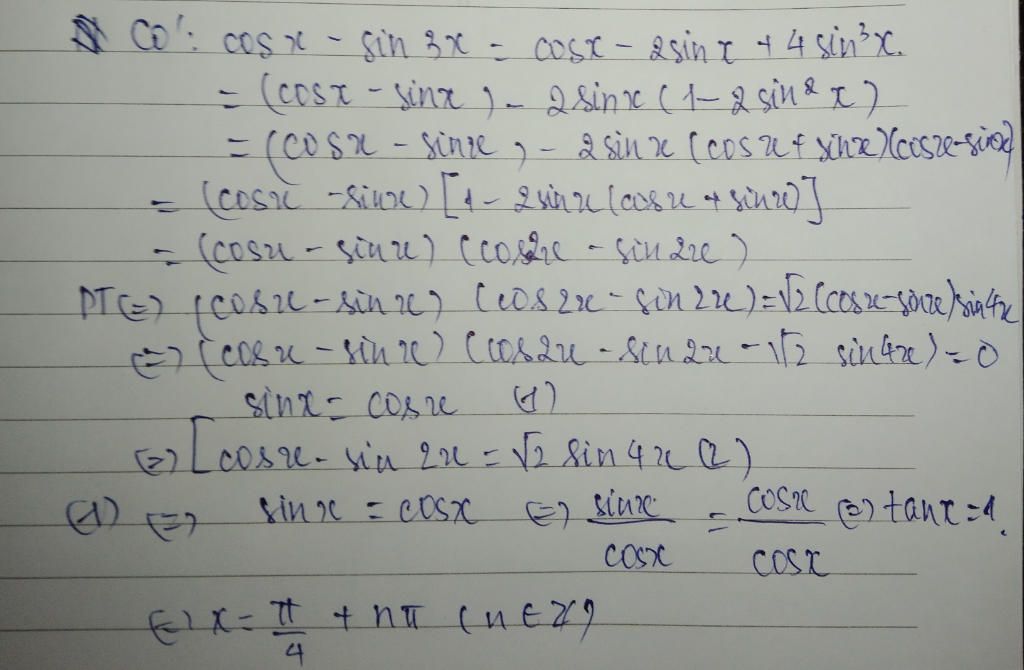 CÓ: cos x - sin 3x = cosx - 2sin x + 4 sin³x.
= (cosx - sinx) - 2sinx (1 - 2 sin² x)
= (cosx - sinx) - 2 sin x (cosx + sinx)(cosx-sinx)
= (cosx - sinx) [1 - 2 sinx (cosx + sinx)]
= (cosx - sinx) (cos2x - sin 2x)
PT (=) (cosx - sin x) (cos 2x - sin 2x) = √2 (cosx-sinx) sin4x
(=) (cos x - sin x) (cos2x - sin 2x - √2 sin4x) = 0
sinx = cosx (1)
(=) [ cos2x - sin 2x = √2 sin 4x (2)
(1) (=) sinx = cosx (=) sinx/cosx = cosx/cosx (=) tanx = 1.
(=) x = π/4 + nπ (n ∈ Z)